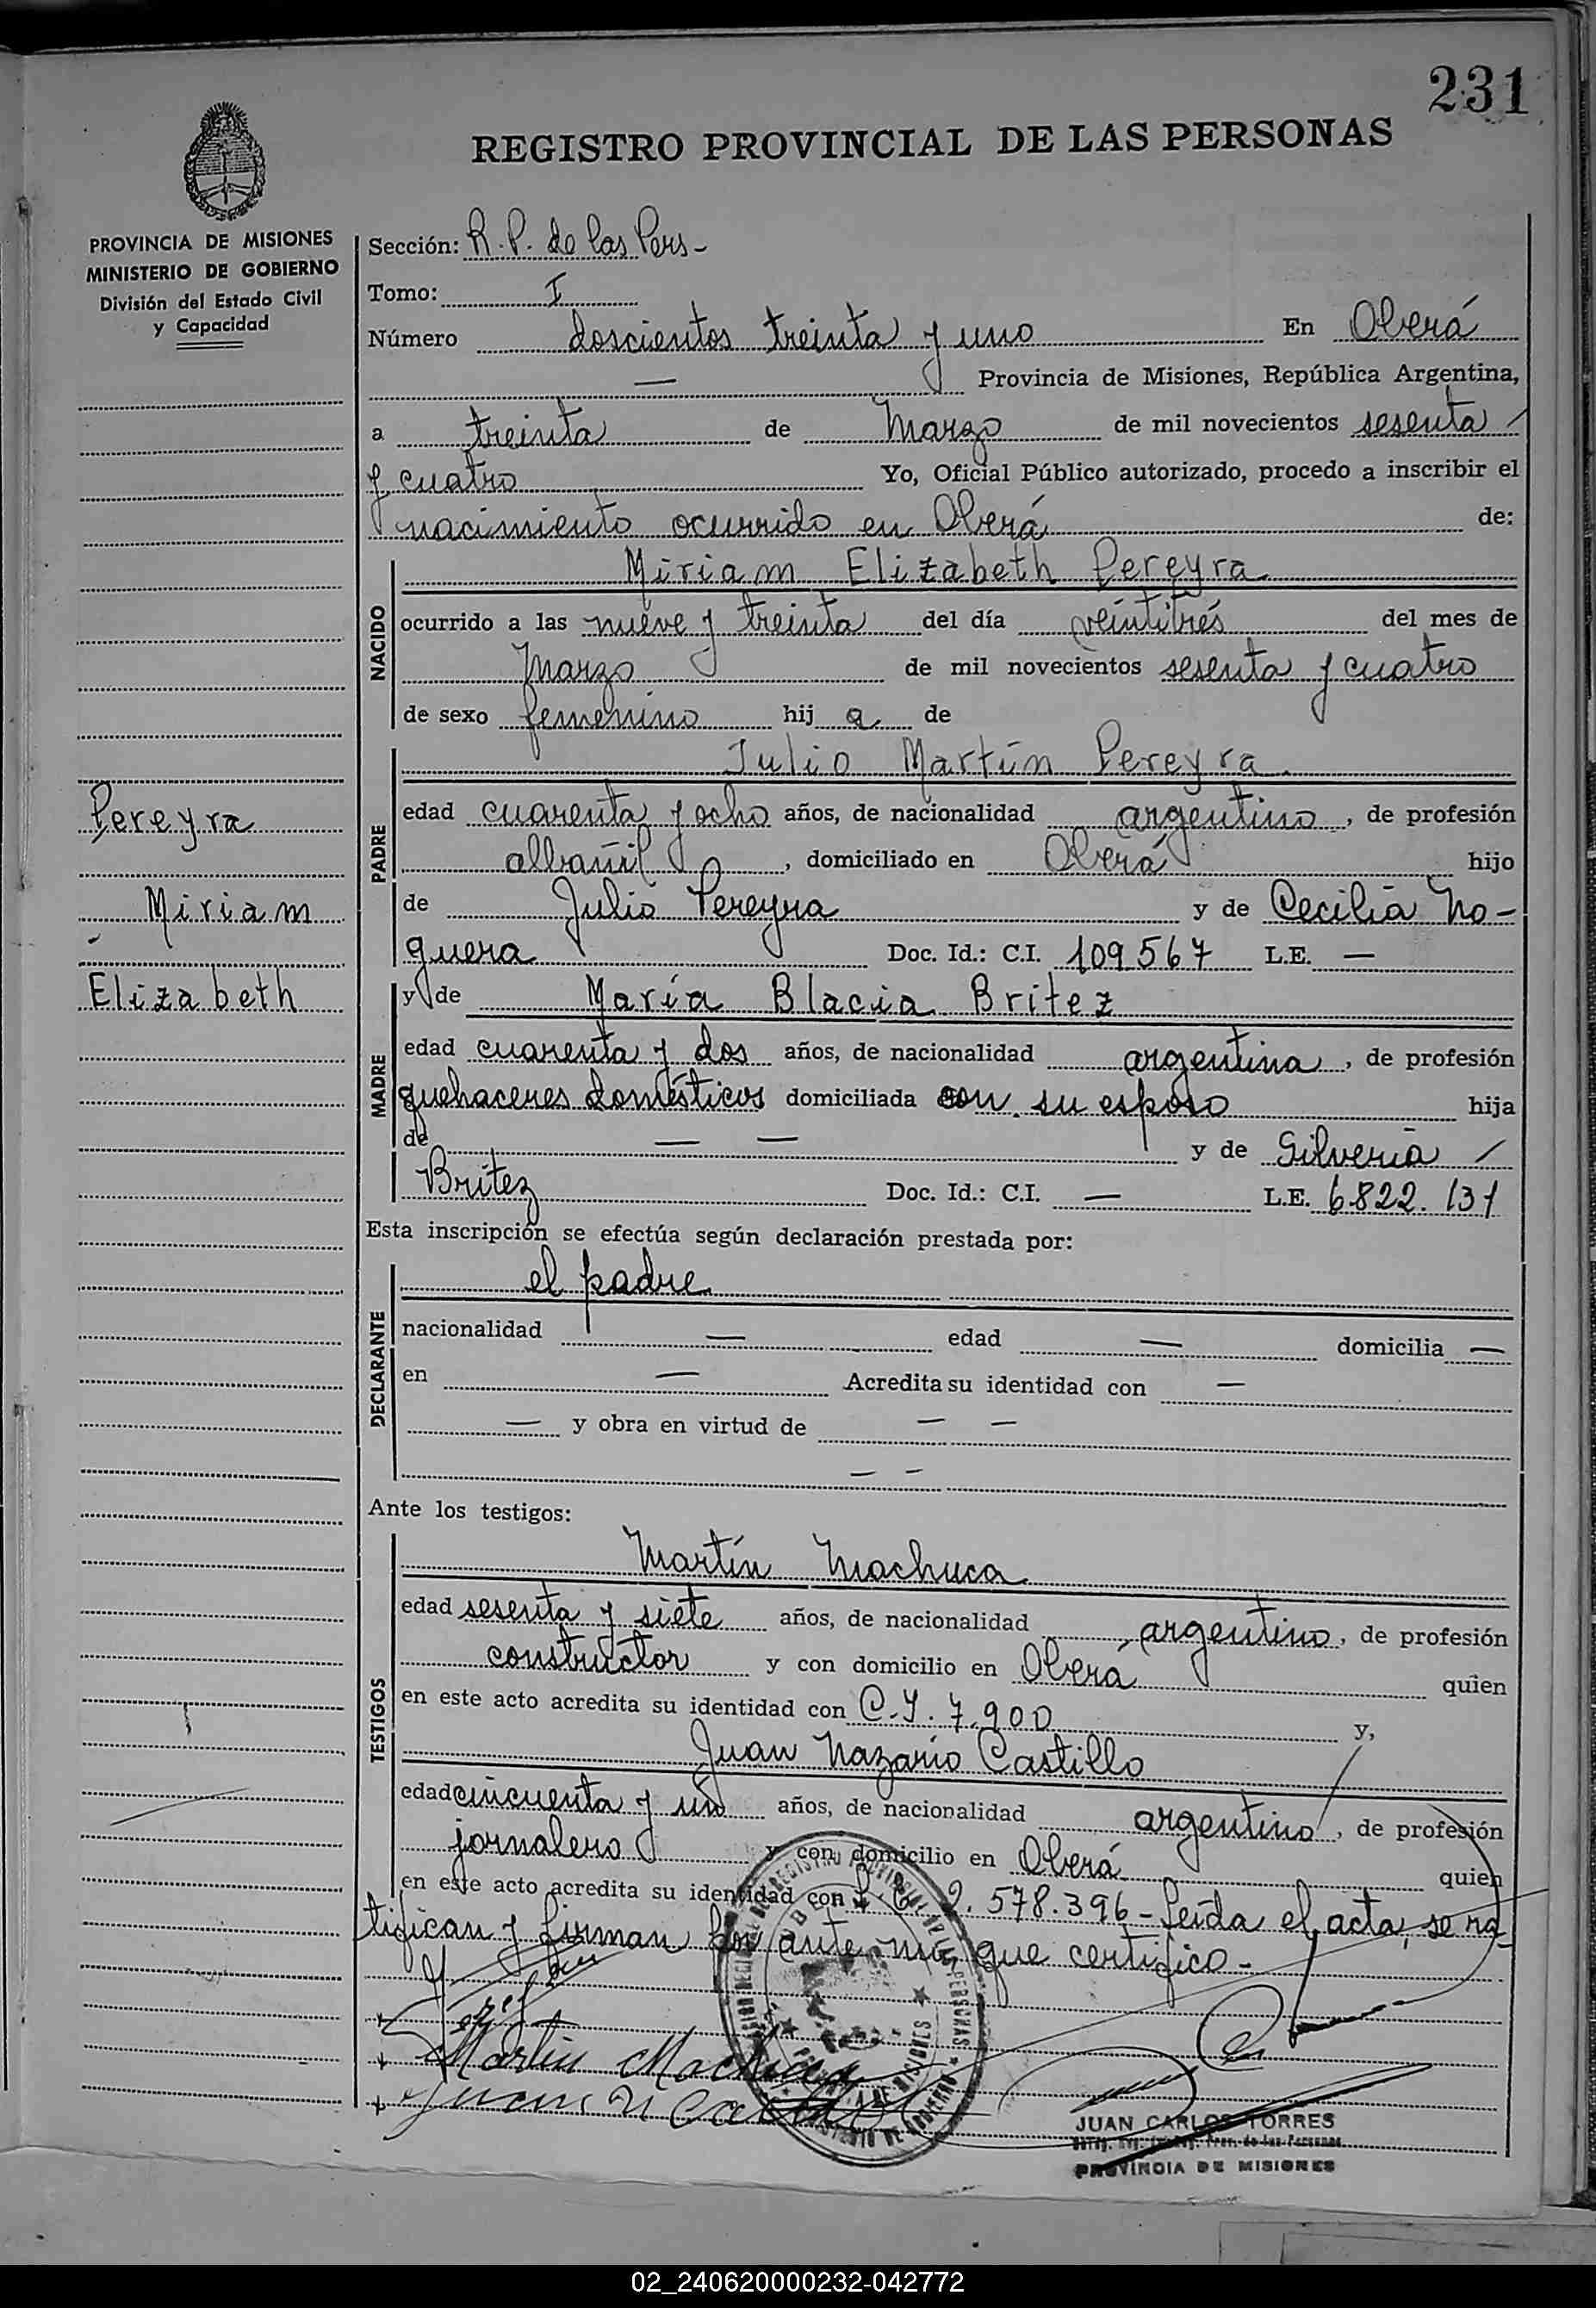 231
REGISTRO PROVINCIAL DE LAS PERSONAS
PROVINCIA DE MISIONES
MINISTERIO DE GOBIERNO
División del Estado Civil
y Capacidad
Sección: R. P. de las Pers-
Tomo: I
Número doscientos treinta y uno En Oberá
— Provincia de Misiones, República Argentina,
a treinta de Marzo de mil novecientos sesenta
y cuatro Yo, Oficial Público autorizado, procedo a inscribir el
nacimiento ocurrido en Oberá de:
NACIDO
Miriam Elizabeth Pereyra
ocurrido a las nueve y treinta del día veintitrés del mes de
Marzo de mil novecientos sesenta y cuatro
de sexo femenino hij a de
PADRE
Julio Martín Pereyra
edad cuarenta y ocho años, de nacionalidad argentino, de profesión
albañil, domiciliado en Oberá hijo
de Julio Pereyra y de Cecilia No-
guera Doc. Id.: C.I. 109.567 L.E. —
Pereyra
Miriam
Elizabeth
MADRE
y de María Blacia Britez
edad cuarenta y dos años, de nacionalidad argentina, de profesión
quehaceres domésticos domiciliada con su esposo hija
de — — y de Silveria
Britez Doc. Id.: C.I. — L.E. 6822.131
Esta inscripción se efectúa según declaración prestada por:
DECLARANTE
el padre
nacionalidad — edad — domicilia —
en — Acredita su identidad con —
— y obra en virtud de — —
— —
Ante los testigos:
TESTIGOS
Martín Machuca
edad sesenta y siete años, de nacionalidad argentino, de profesión
constructor y con domicilio en Oberá quien
en este acto acredita su identidad con C.I. 7.900 y,
Juan Nazario Castillo
edad cincuenta y un años, de nacionalidad argentino, de profesión
jornalero y con domicilio en Oberá quien
en este acto acredita su identidad con 2.578.396 - Leída el acta, se ra-
tifican y firman por ante mí que certifico -
Martin Machuca
Juan N Castillo
JUAN CARLOS TORRES
PROVINCIA DE MISIONES
02_240620000232-042772